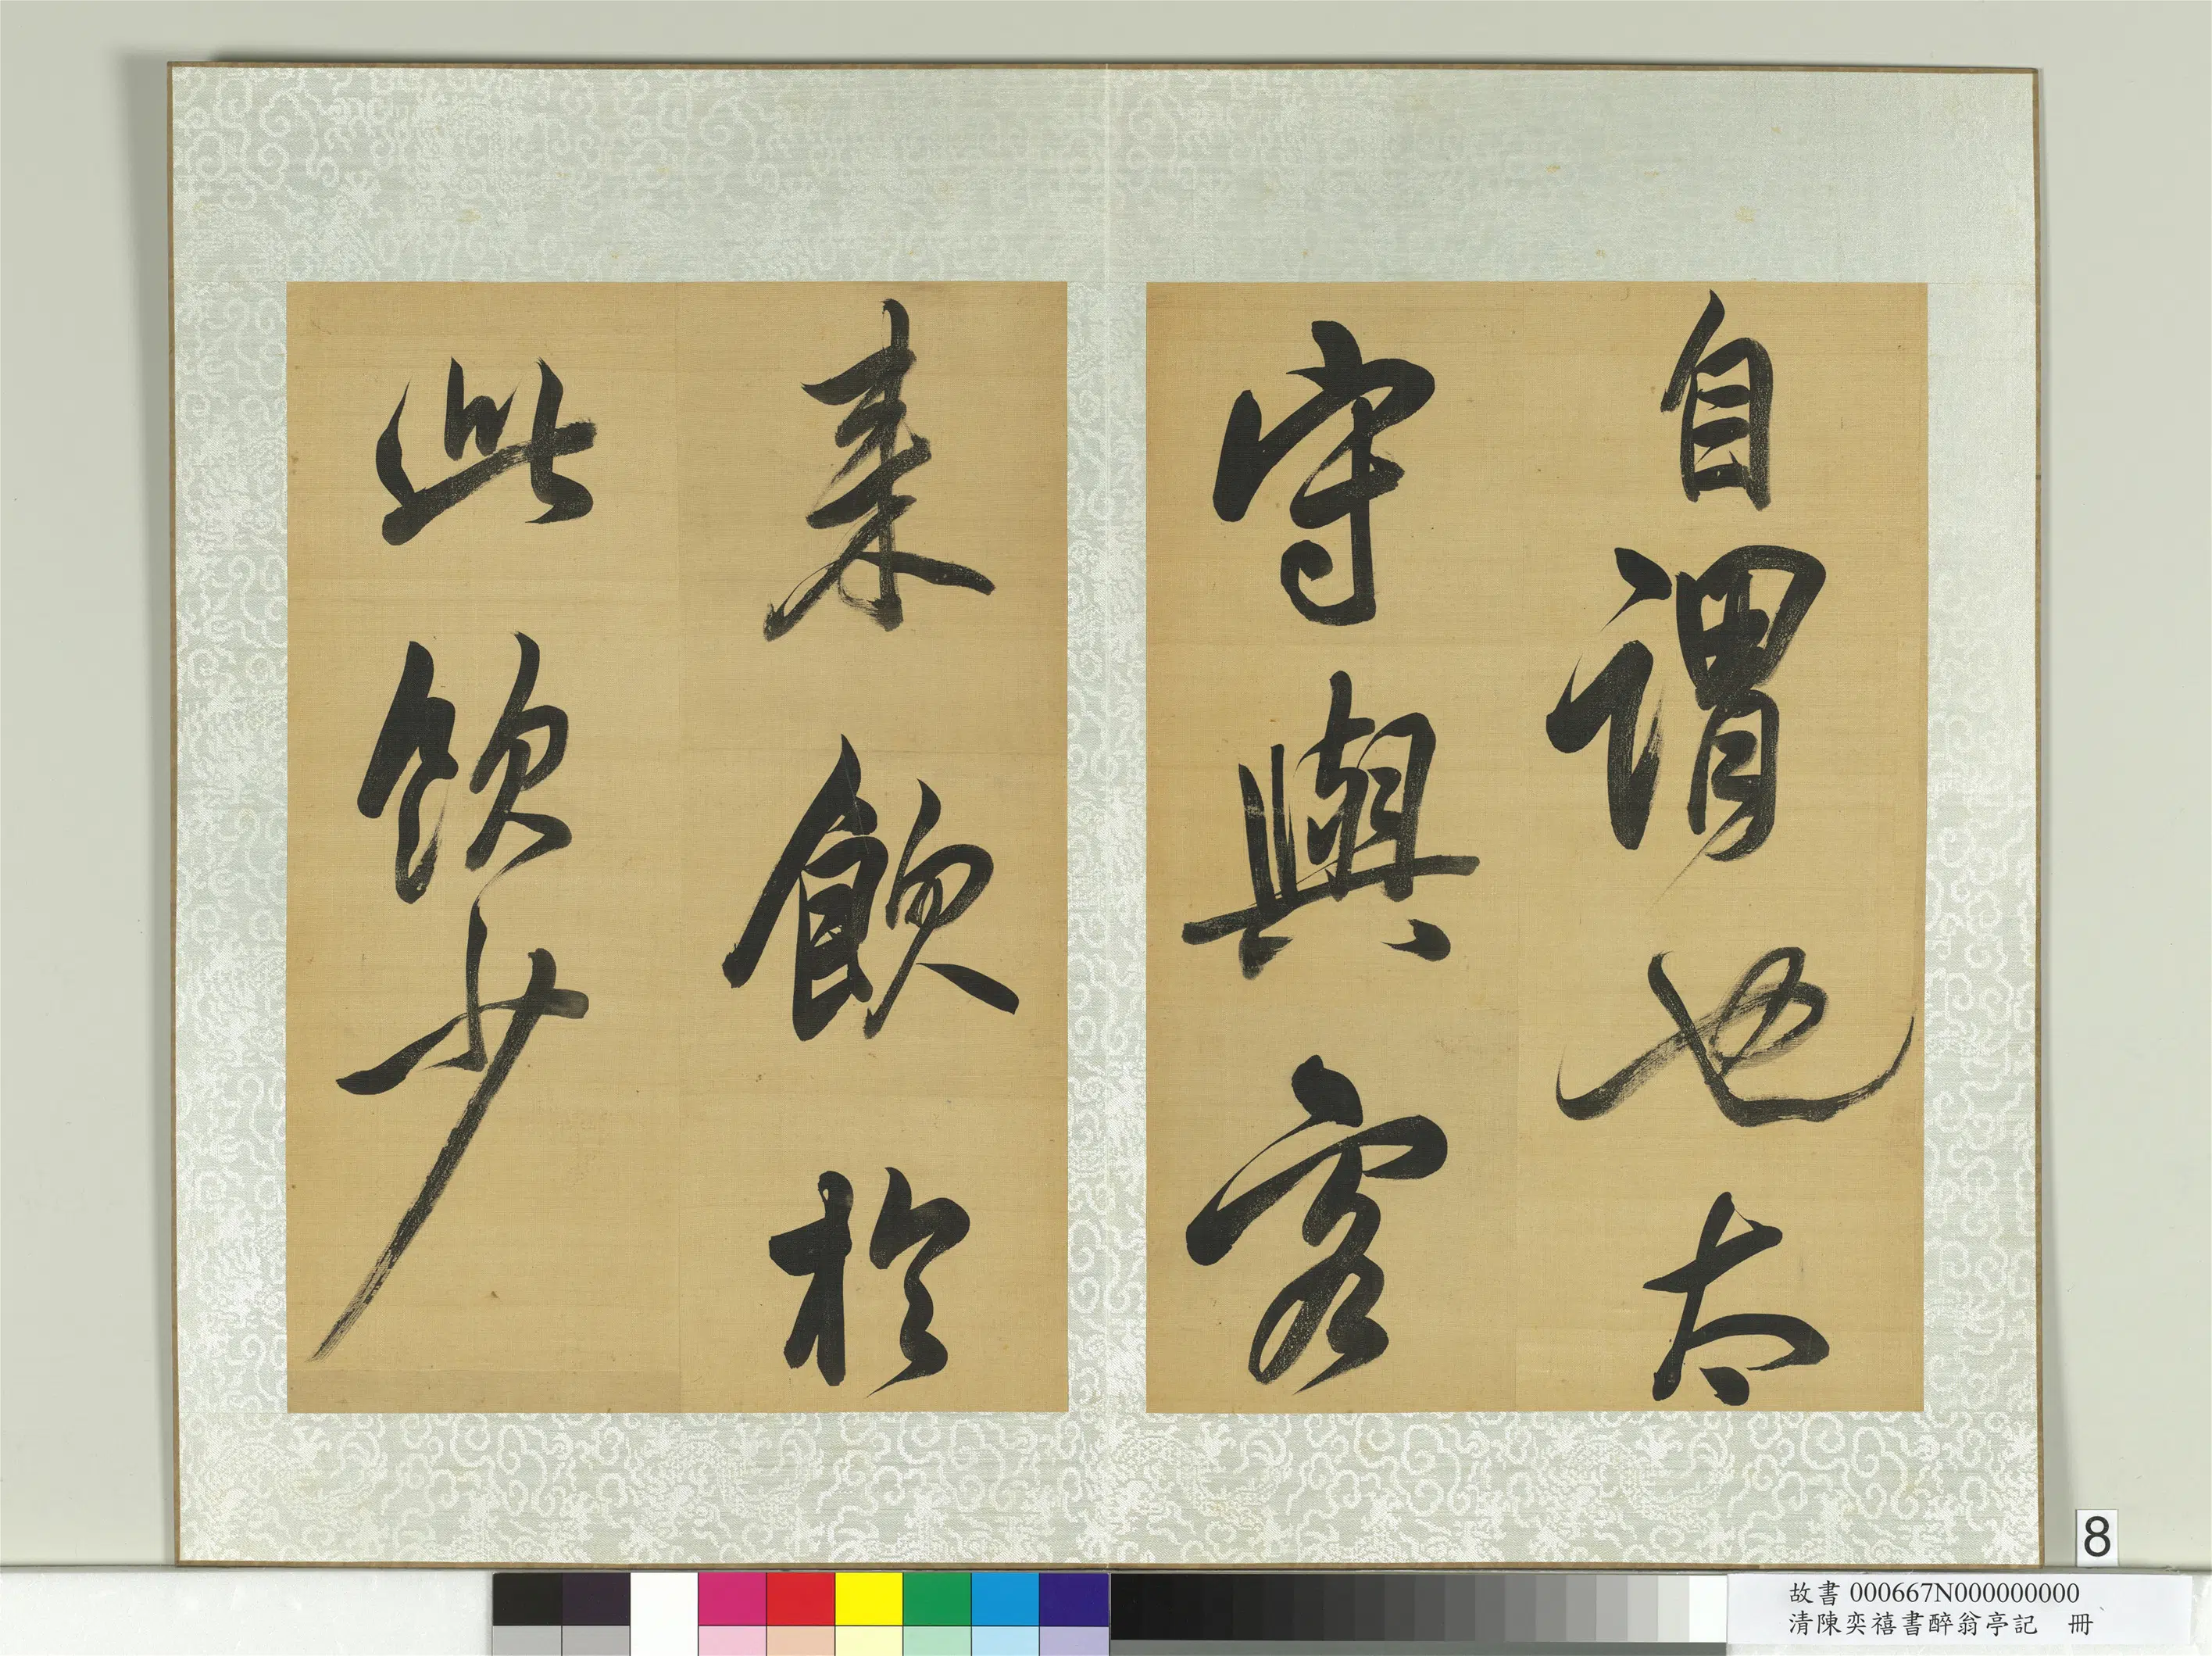 自謂也太
守與客
来飲於
此飲少
8
故書 000667N000000000
清陳奕禧書醉翁亭記 冊